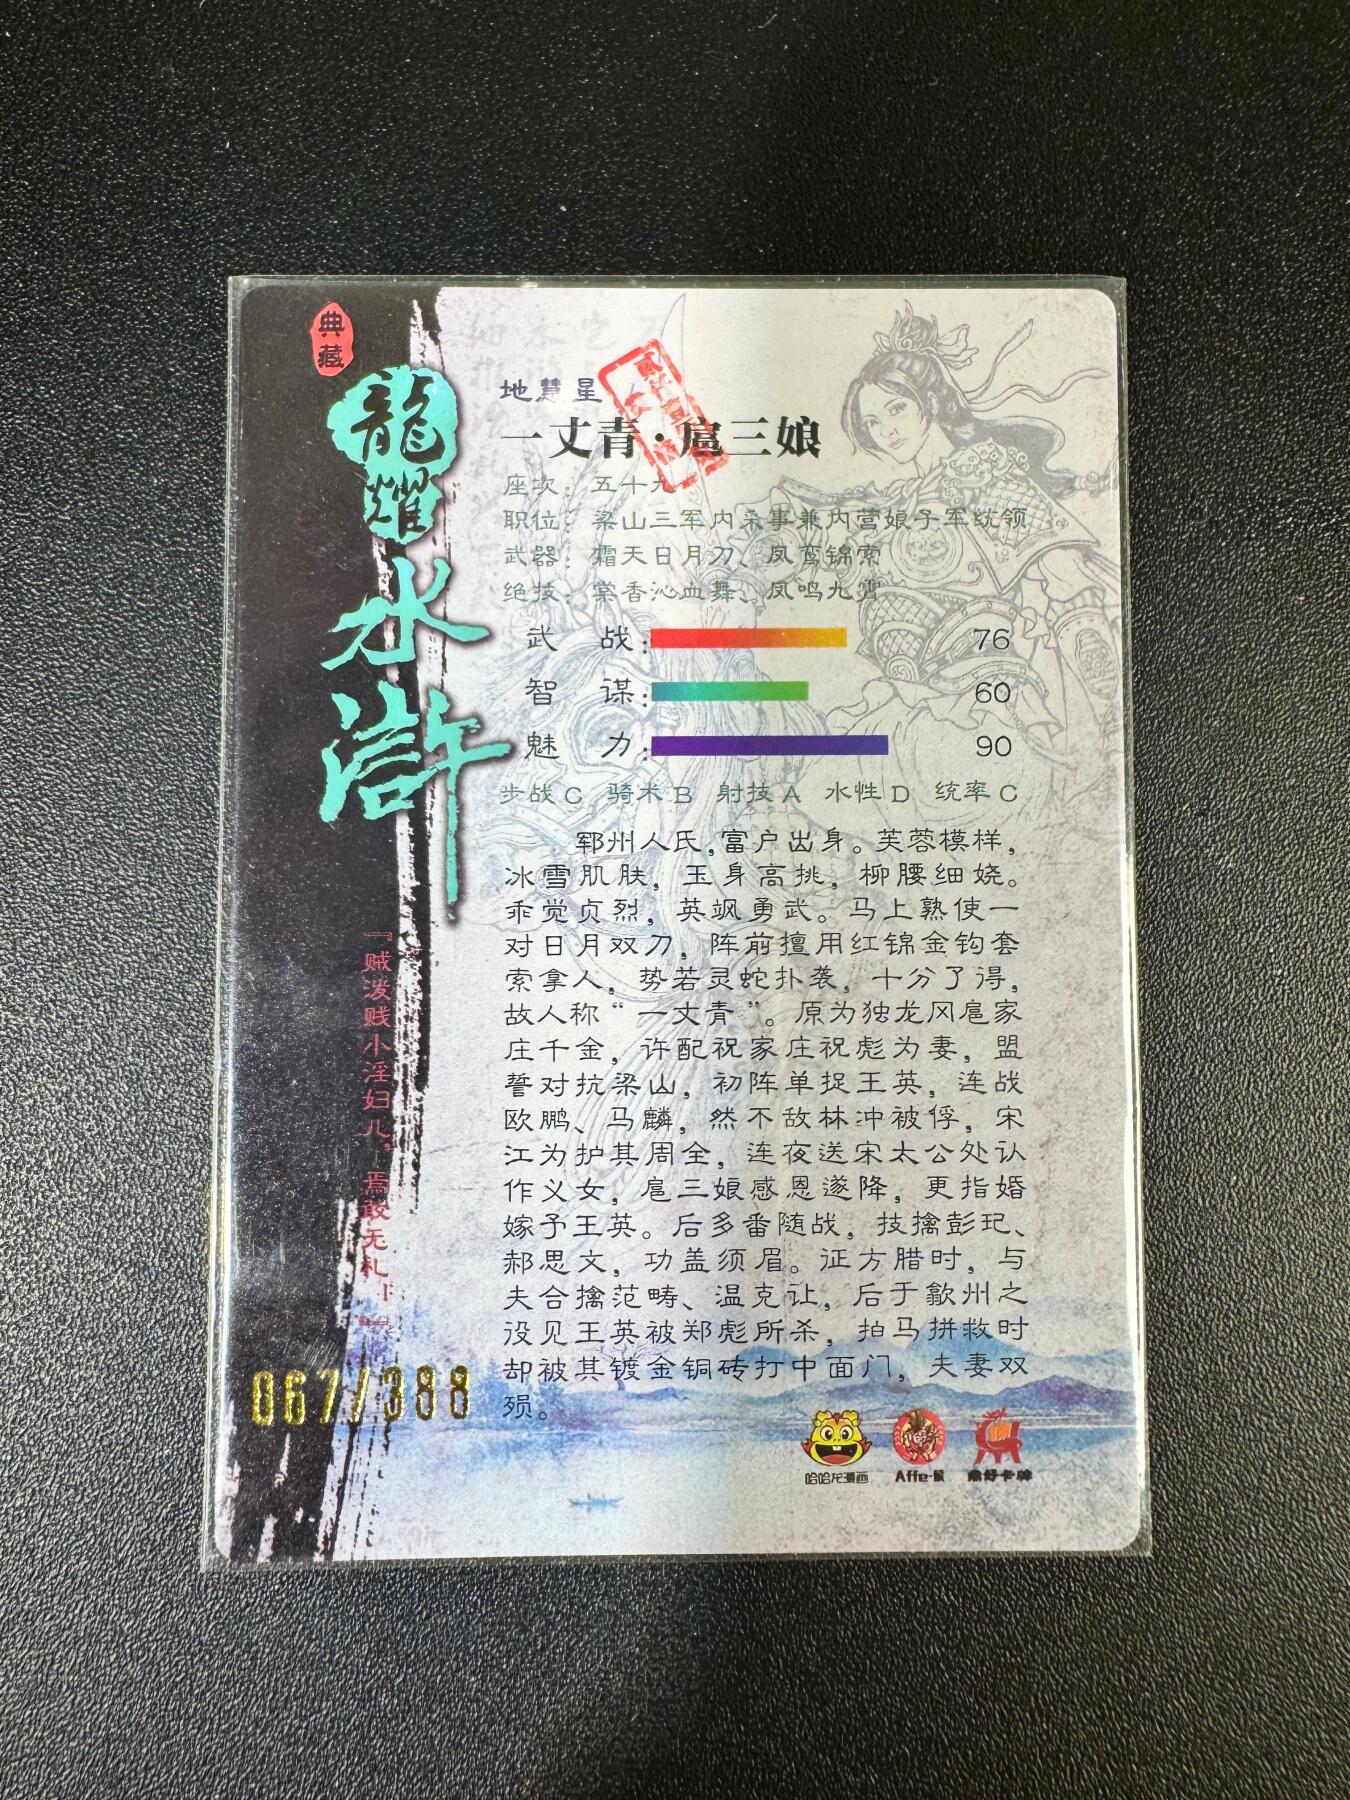 典藏
龍耀
水滸
『贼泼贱小淫妇儿，焉敢无礼！』
067/388
地慧星
一丈青·扈三娘
座次：五十九
职位：梁山三军内采事兼内营娘子军统领
武器：霜天日月刀、凤鸾锦索
绝技：棠香沁血舞、凤鸣九霄
武 战： 76
智 谋： 60
魅 力： 90
步战C 骑术B 射技A 水性D 统率C
郓州人氏，富户出身。芙蓉模样，
冰雪肌肤，玉身高挑，柳腰细娆。
乖觉贞烈，英飒勇武。马上熟使一
对日月双刀，阵前擅用红锦金钩套
索拿人，势若灵蛇扑袭，十分了得，
故人称“一丈青”。原为独龙冈扈家
庄千金，许配祝家庄祝彪为妻，盟
誓对抗梁山，初阵单捉王英，连战
欧鹏、马麟，然不敌林冲被俘，宋
江为护其周全，连夜送宋太公处认
作义女，扈三娘感恩遂降，更指婚
嫁予王英。后多番随战，技擒彭玘、
郝思文，功盖须眉。征方腊时，与
夫合擒范畴、温克让，后于歙州之
没见王英被郑彪所杀，拍马拼救时
却被其镀金铜砖打中面门，夫妻双
殒。
哈哈龙漫画
Affe-猴
鼎好卡牌